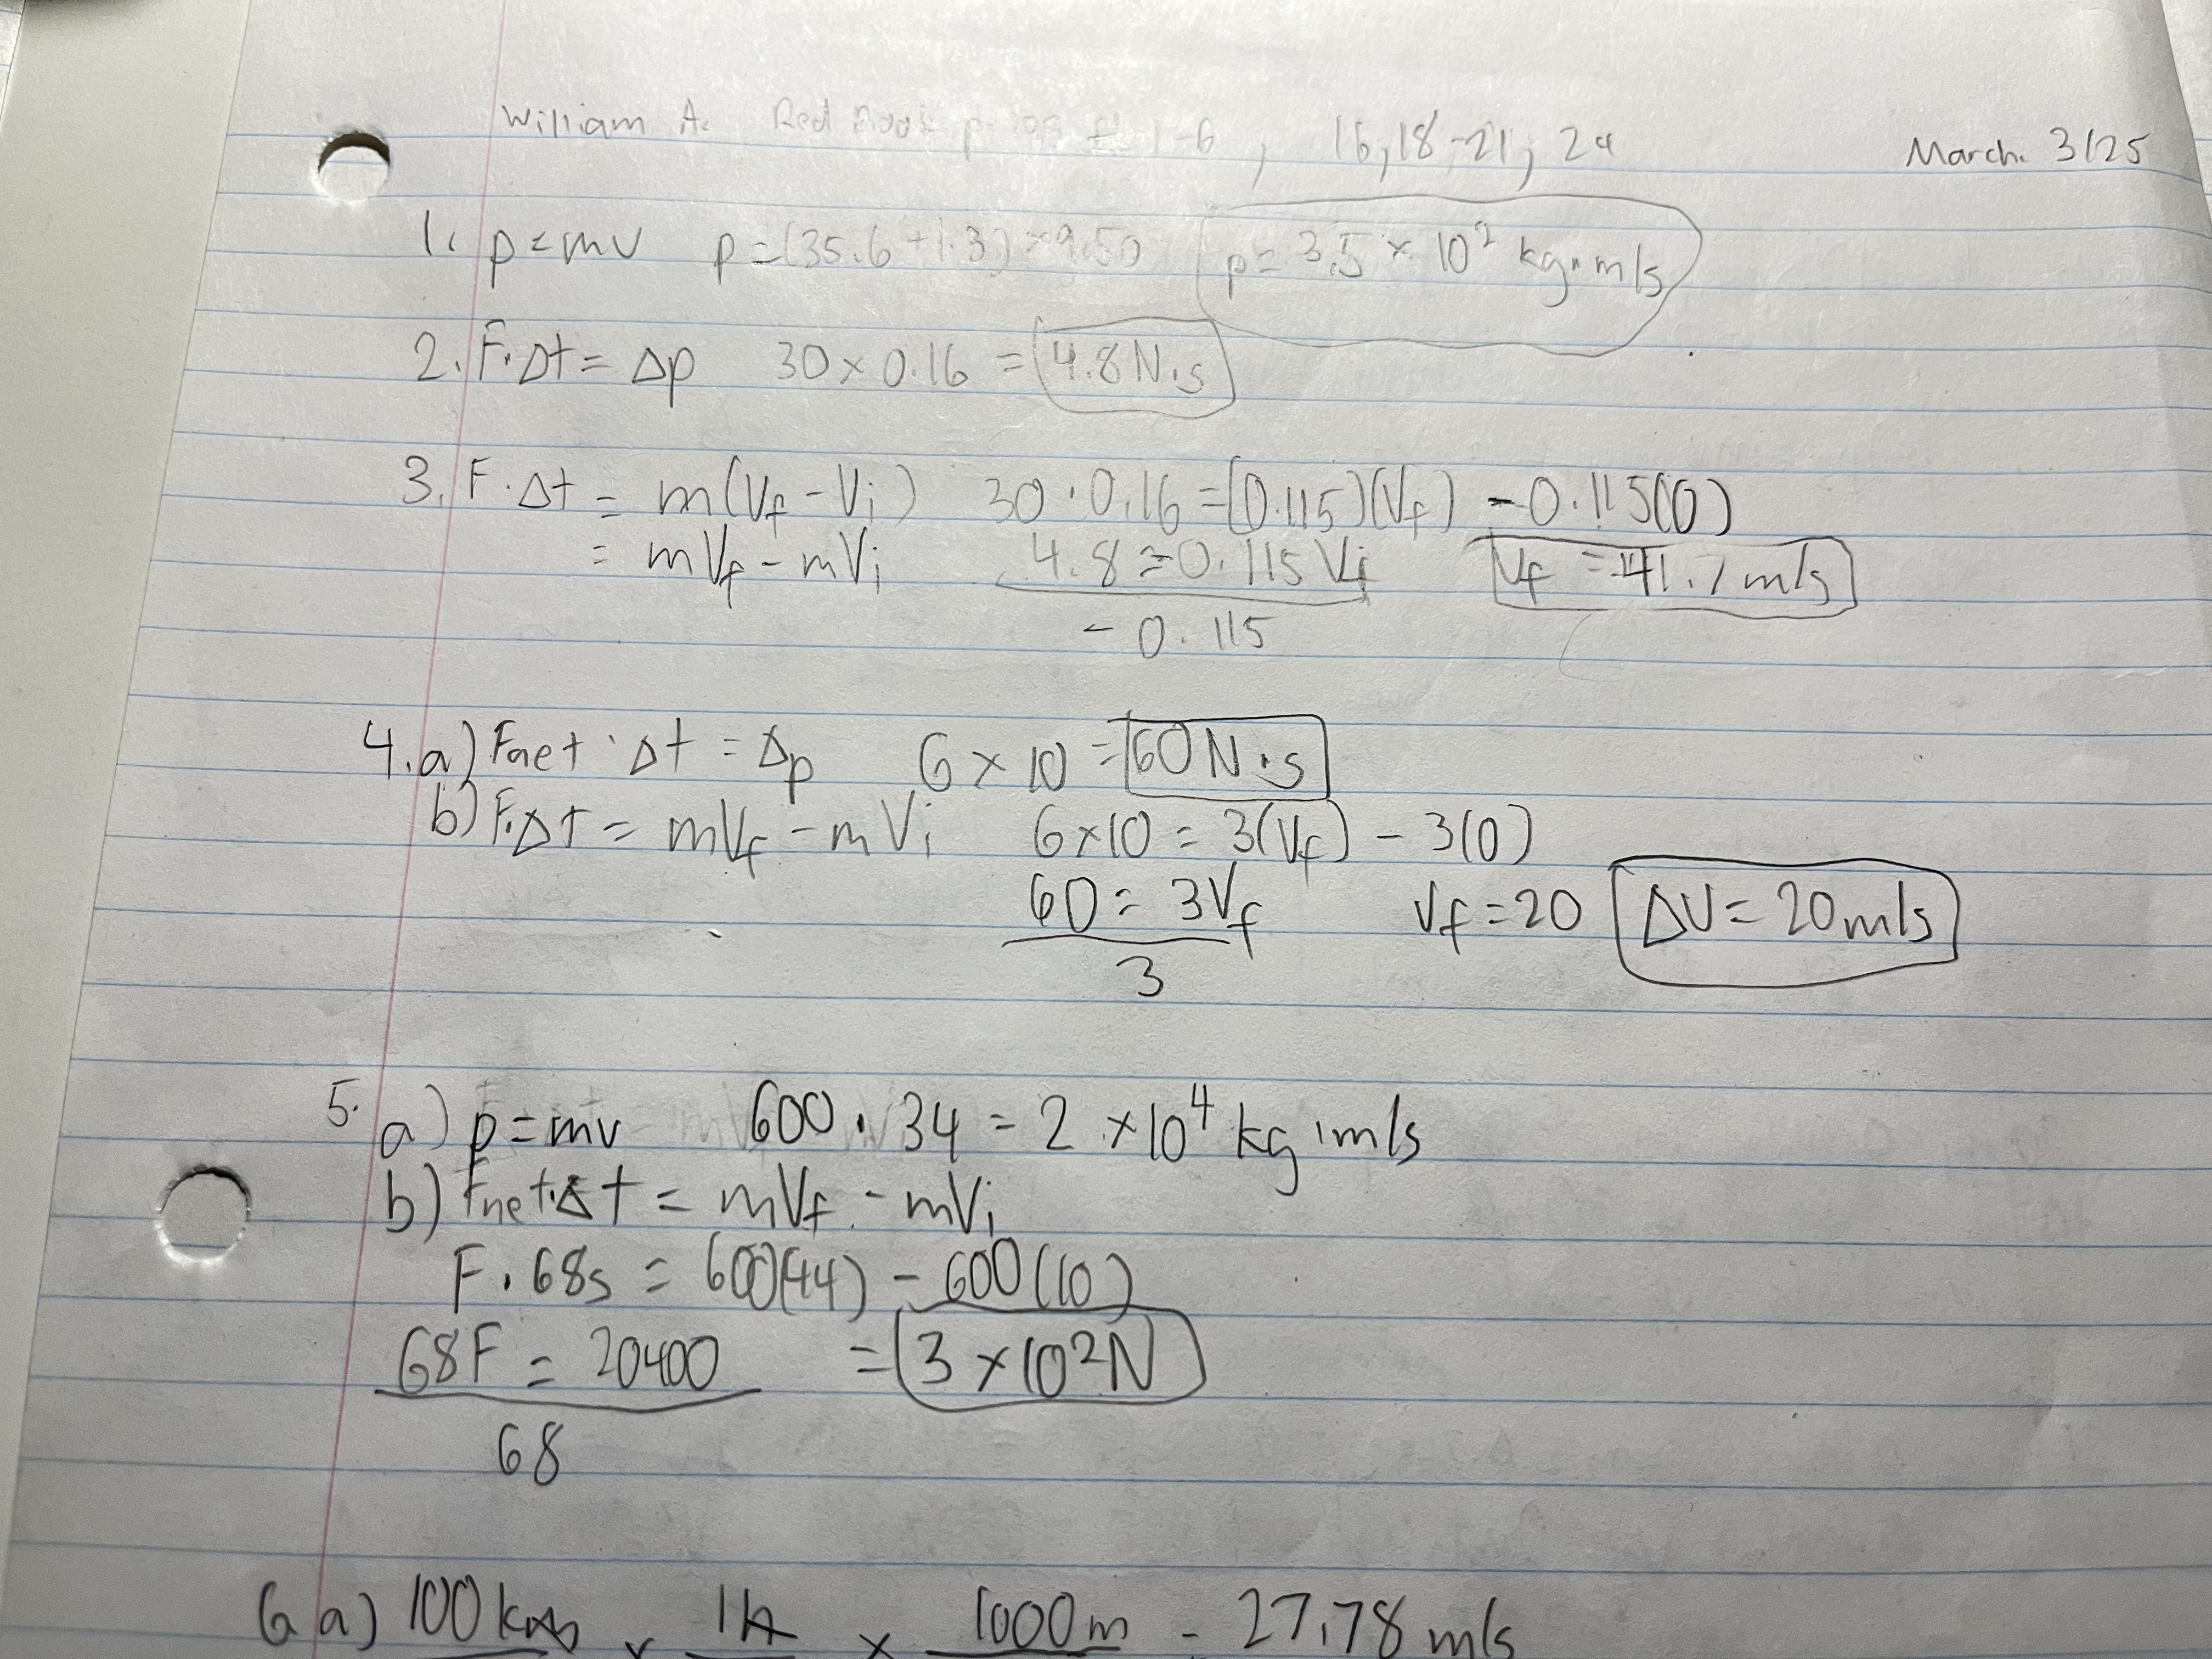 William A. Red Book p. 199 # 1-6, 16, 18-21, 24 March. 3/25
1. p=mv p=(35.6+1.3)×9.50 p= 3.5 × 10² kg·m/s
2. F·Δt = Δp 30×0.16 = 4.8 N·s
3. F·Δt = m(Vf - Vi) 30·0.16 = (0.115)(Vf) - 0.115(0)
= mVf - mVi 4.8 = 0.115 Vf Vf = 41.7 m/s
- 0.115
4. a) Fnet · Δt = Δp 6 × 10 = 60 N·s
b) F·Δt = mVf - mVi 6×10 = 3(Vf) - 3(0)
60 = 3Vf Vf = 20 ΔV = 20 m/s
3
5. a) p=mv 600 · 34 = 2 ×10⁴ kg·m/s
b) Fnet·Δt = mVf - mVi
F · 68s = 600(44) - 600(10)
68F = 20400 = 3 ×10² N
68
6 a) 100 km × 1h × 1000 m = 27.78 m/s